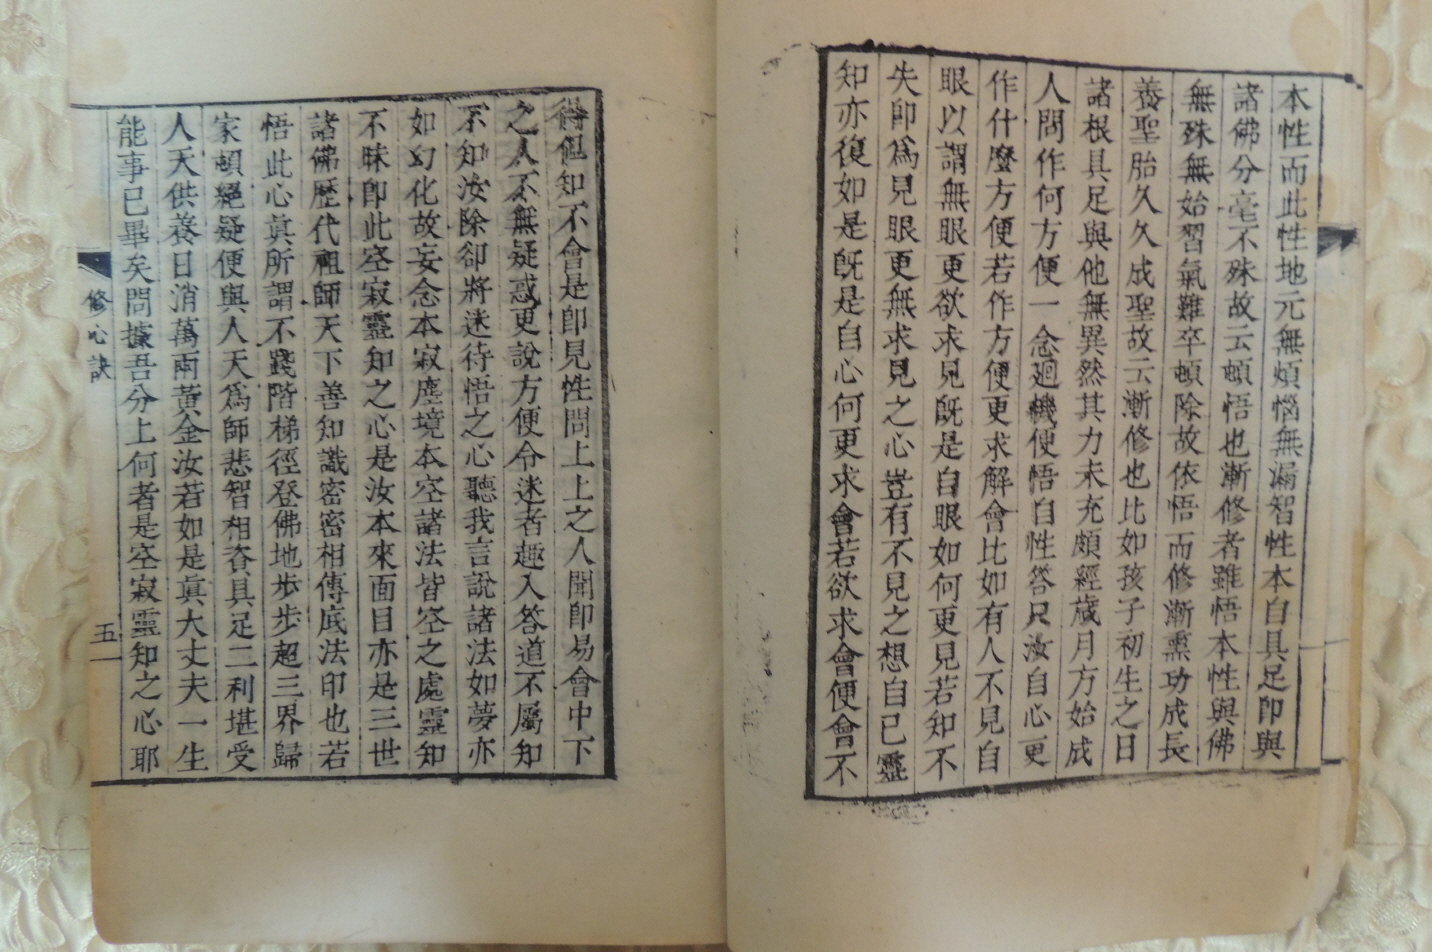 本性而此性地元無煩惱無漏智性本自具足卽與
諸佛分毫不殊故云頓悟也漸修者雖悟本性與佛
無殊無始習氣難卒頓除故依悟而修漸熏功成長
養聖胎久久成聖故云漸修也比如孩子初生之日
諸根具足與他無異然其力未充頗經歲月方始成
人問作何方便一念廻機便悟自性答只汝自心更
作什麼方便若作方便更求解會比如有人不見自
眼以謂無眼更欲求見旣是自眼如何更見若知不
失卽爲見眼更無求見之心豈有不見之想自己靈
知亦復如是旣是自心何更求會若欲求會便會不
得但知不會是卽見性問上上之人聞卽易會中下
之人不無疑惑更說方便令迷者趣入答道不屬知
不知汝除却將迷待悟之心聽我言說諸法如夢亦
如幻化故妄念本寂塵境本空諸法皆空之處靈知
不昧卽此空寂靈知之心是汝本來面目亦是三世
諸佛歷代祖師天下善知識密密相傳底法印也若
悟此心眞所謂不踐階梯徑登佛地步步超三界歸
家頓絕疑便與人天爲師悲智相資具足二利堪受
人天供養日消萬兩黃金汝若如是眞大丈夫一生
能事已畢矣問據吾分上何者是空寂靈知之心耶
修心訣
五